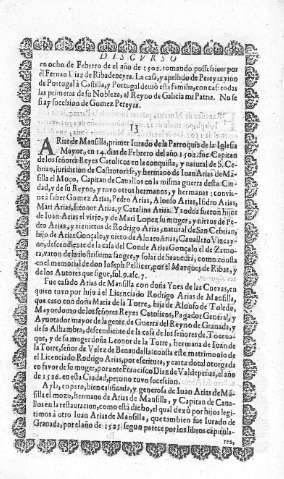 DISCURSO
en ocho de Febrero de el año de 1502. tomando possession por
èl Fernan Diaz de Ribadeneyra. La casa, y apellido de Pereyra vino
de Portugal à Castilla, y Portugal deuiò esta familia, con casi todas
las primeras de su Nobleza, al Reyno de Galicia mi Patria. No se
si ay sucession de Gomez Pereyra.
13
Arias de Mansilla, primer Iurado de la Parroquia de la Iglesia
Mayor, en 14. dias de Febrero del año 1502. fue Capitan
de los señores Reyes Catolicos en la conquista, y natural de S. Cebrian,
jurisdicion de Castrotorife, y hermano de Iuan Arias de Mansilla
el Moço, Capitan de Cauallos en la misma guerra desta Ciudad,
y de su Reyno, y tuuo otros hermanos, y hermanas: conviene
à saber Gomez Arias, Pedro Arias, Alonso Arias, Isidro Arias,
Mari Arias, Arias, y Catalina Arias. Y todos fueron hijos
de Iuan Arias el viejo, y de Mari Lopez su muger, y nietos de Pedro
Arias, y visnietos de Rodrigo Arias, natural de San Cebrian,
hijo de Arias Gonçalo, y nieto de Aluaro Arias, Cauallero
descendiente de la casa del Conde Arias Gonçalo el de Zamora,
varon de lustrosissima sangre, y solar de como consta
en el memorial de don Ioseph Pellicer, por el Marques de Ribas, y
de los Autores que sigue, fol. 9. asc. 7.
Fue casado Arias de Mansilla con doña Ynes de las Cueuas, en
quien tuuo por hijo à el Licenciado Rodrigo Arias de Mansilla,
que caso con doña Maria de la Torre, hija de Alonso de Toledo,
Mayordomo de los señores Reyes Catolicos, Pagador General, y
Ayuntador mayor de la gente de Guerra del Reyno de Granada, y
de su Alhambra, descendiente de la casa de los señores de
y de su muger doña Leonor de la Torre, hermana de Iuan de
la Torre, señor de Valor, y de Benandalla: consta este matrimonio de
el Licenciado Rodrigo Arias, por escritura, y carta dotal otorgada
en favor de su muger, por ante Francisco Diaz de Valdepeñas, el año
de 1518. en esta Ciudad, pero no tuuo sucession.
Ayla, empero, bien calificada, y generosa de Iuan Arias de Mansilla
el moço, hermano de Arias de Mansilla, y Capitan de Cauallos
en la restauracion, como està dicho, el qual dexò por hijos legitimos
à otro Iuan Arias de Mansilla, que tambien fue Iurado de
Granada, por el año de 1525. segun parece por los libros capitula-
res,